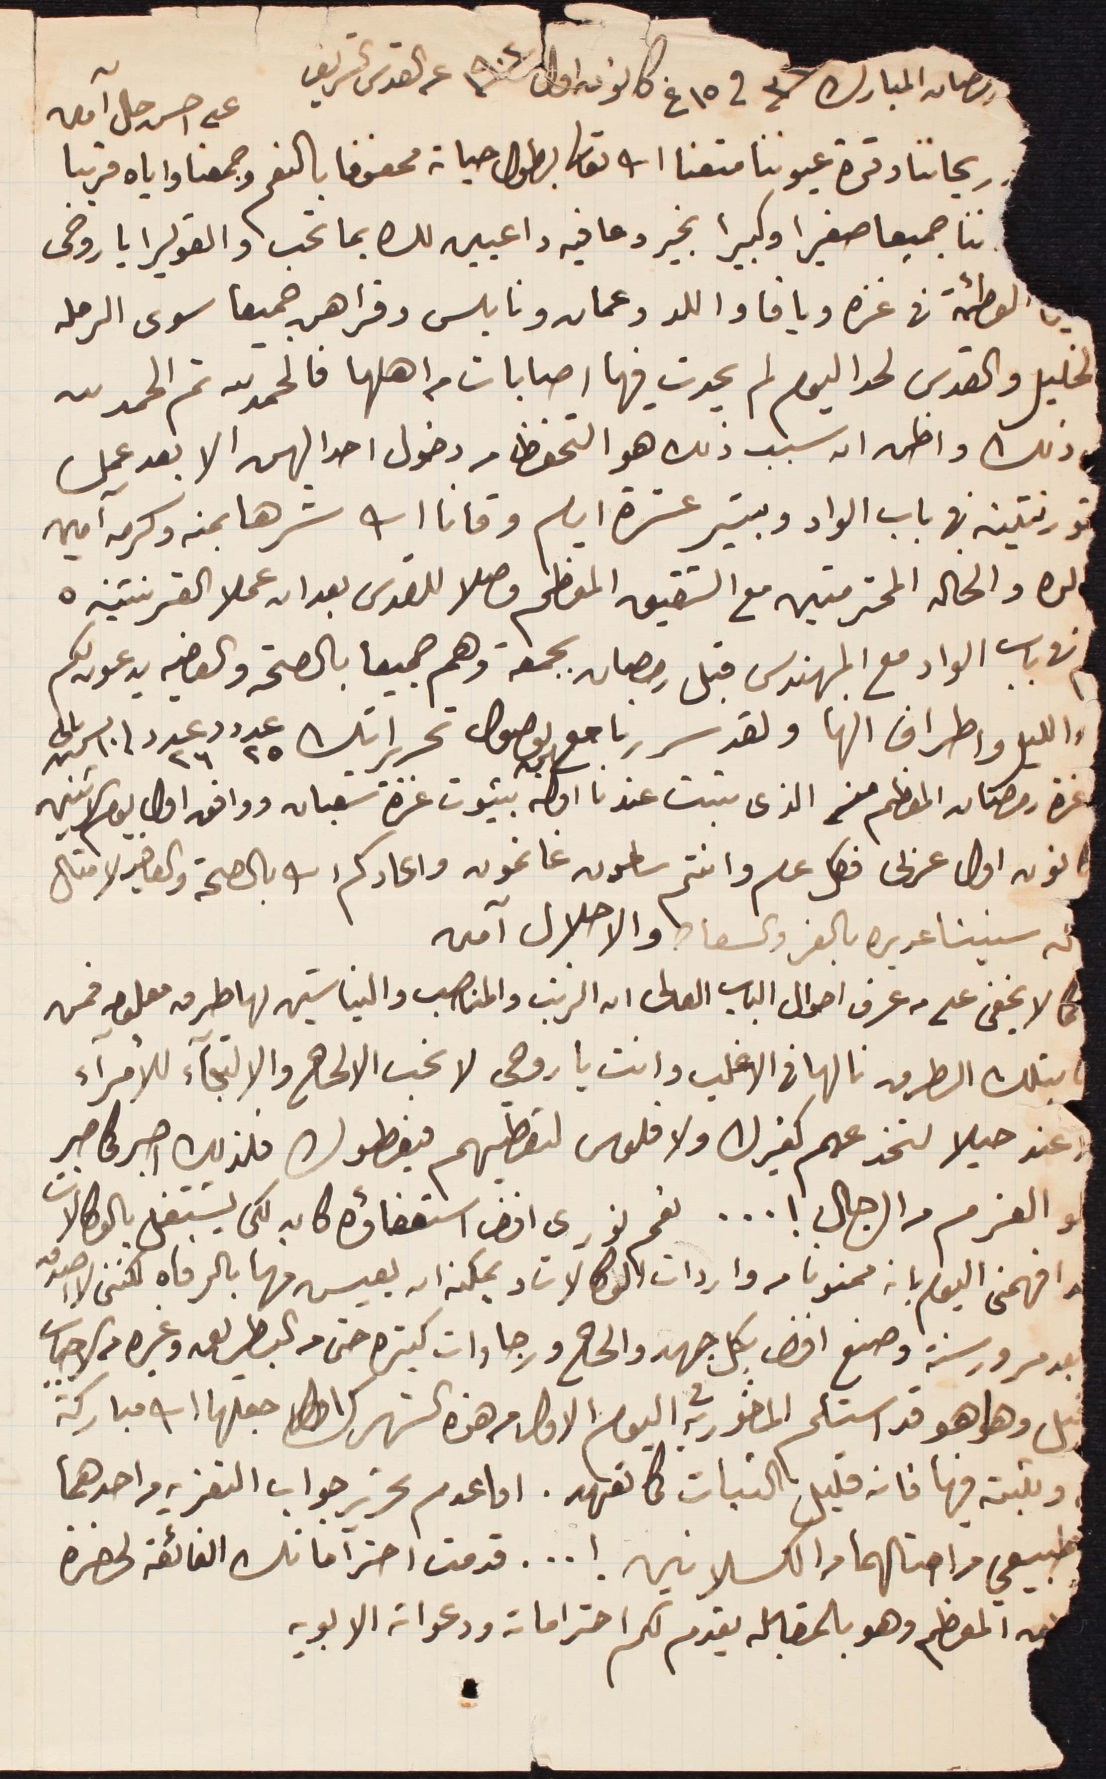 رمضان المبارك في ١٥ غ كانون اول عن القدس الشريف
على احسن حال آمين
ريحانتنا وقرة عيوننا متعنا الله تعالى بطول حياته محفوفا بالنعم وجمعنا واياه قريبا
جميعا صغيرا وكبيرا بخير وعافيه داعيين لك بما تحب والقوليرا يا روحي
الوطئة في غزه ويافا واللد وعمان ونابلس وقراهن جميعا سوى الرمله
الخليل والقدس لحد اليوم لم يحدث فيها اصابات من اهلها فالحمد لله ثم الحمد لله
ذلك واظن ان سبب ذلك هو التحفظ من دخول احد اليهن الا بعد عمل
قورنتينه في باب الواد وبيتير عشرة ايام وقانا الله شرها بمنه وكرمه آمين
والخاله المحترمتين مع الشقيق المعظم وصلا للقدس بعد ان عملا القرنتينه ٥
في باب الواد مع المهندس قبل رمضان بجمعة وهم جميعا بالصحة والعافيه يدعون لكم
الليل واطراف النهار ولقد سررنا جميعا بوصول تحريراتك عدد ٢٥ وعدد ٢٦
غرة رمضان المعظم الذي ثبت عندنا اوله بثبوت غرة شعبان ووافق اول يوم الاثنين
كانون اول غربي فكل عام وانتم سالمون غانمون واعادكم الله بالصحة والعافيه لامثال
سنينا عديده بالعز والسعاده والاجلال آمين
كما لا يخفى على من عرف احوال الباب العالي ان الرتب والمناصب والنياشين لها طرق معلومه فمن
بتلك الطرق نالها في الاغلب وانت يا روحي لا تحب الالحاح والالتجآء للأمرآء
عند حيلا لتخدعهم كغيرك ولا فلوس لتعطيهم فيعطوك فلذلك اصبر كما صبر
لو العزم من الرجال !... نعم نوري افندي استعفاؤه كان لكي يشتغل بالوكالات
افهمني اليوم بانه ممنونا من واردات الوكالات ويمكنه ان يعيش منها بالرفاه لكنني لا اصدقه
بعد مرور سنة وصنع افندي بكل جهد والحاح ورجاءات كثيره حتى من البطريق وغيره من الاجانب
قبل وها هو قد استلم المأموريه في اليوم الاول من هذه الشهر جعلها الله مباركة
ويثبته فيها فانه قليل الثبات كما تعهد . اما عدم تحرير جواب التعزيه من احدهما
طبيعي من امثالهما من الكسلانين !... قدمت احتراماتك الفائقة لحضرة
المعظم وهو بالمقابله يقدم لكم احتراماته ودعواته الابويه